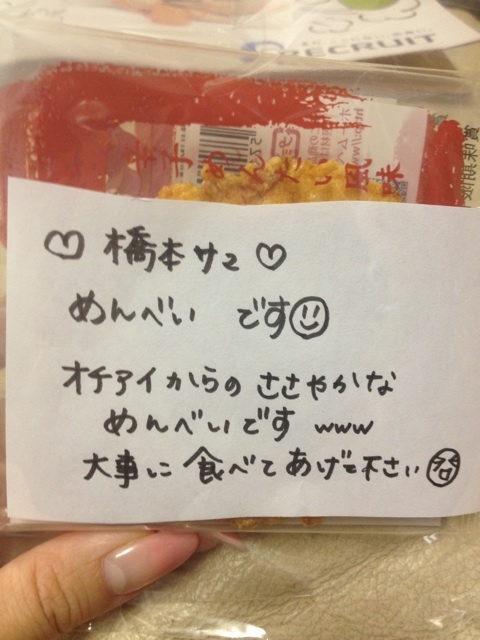 RECRUIT
辛子めんたい風味
♡ 橋本サマ ♡
めんべい です
オチアイからの ささやかな
めんべいです www
大事に 食べてあげて下さい